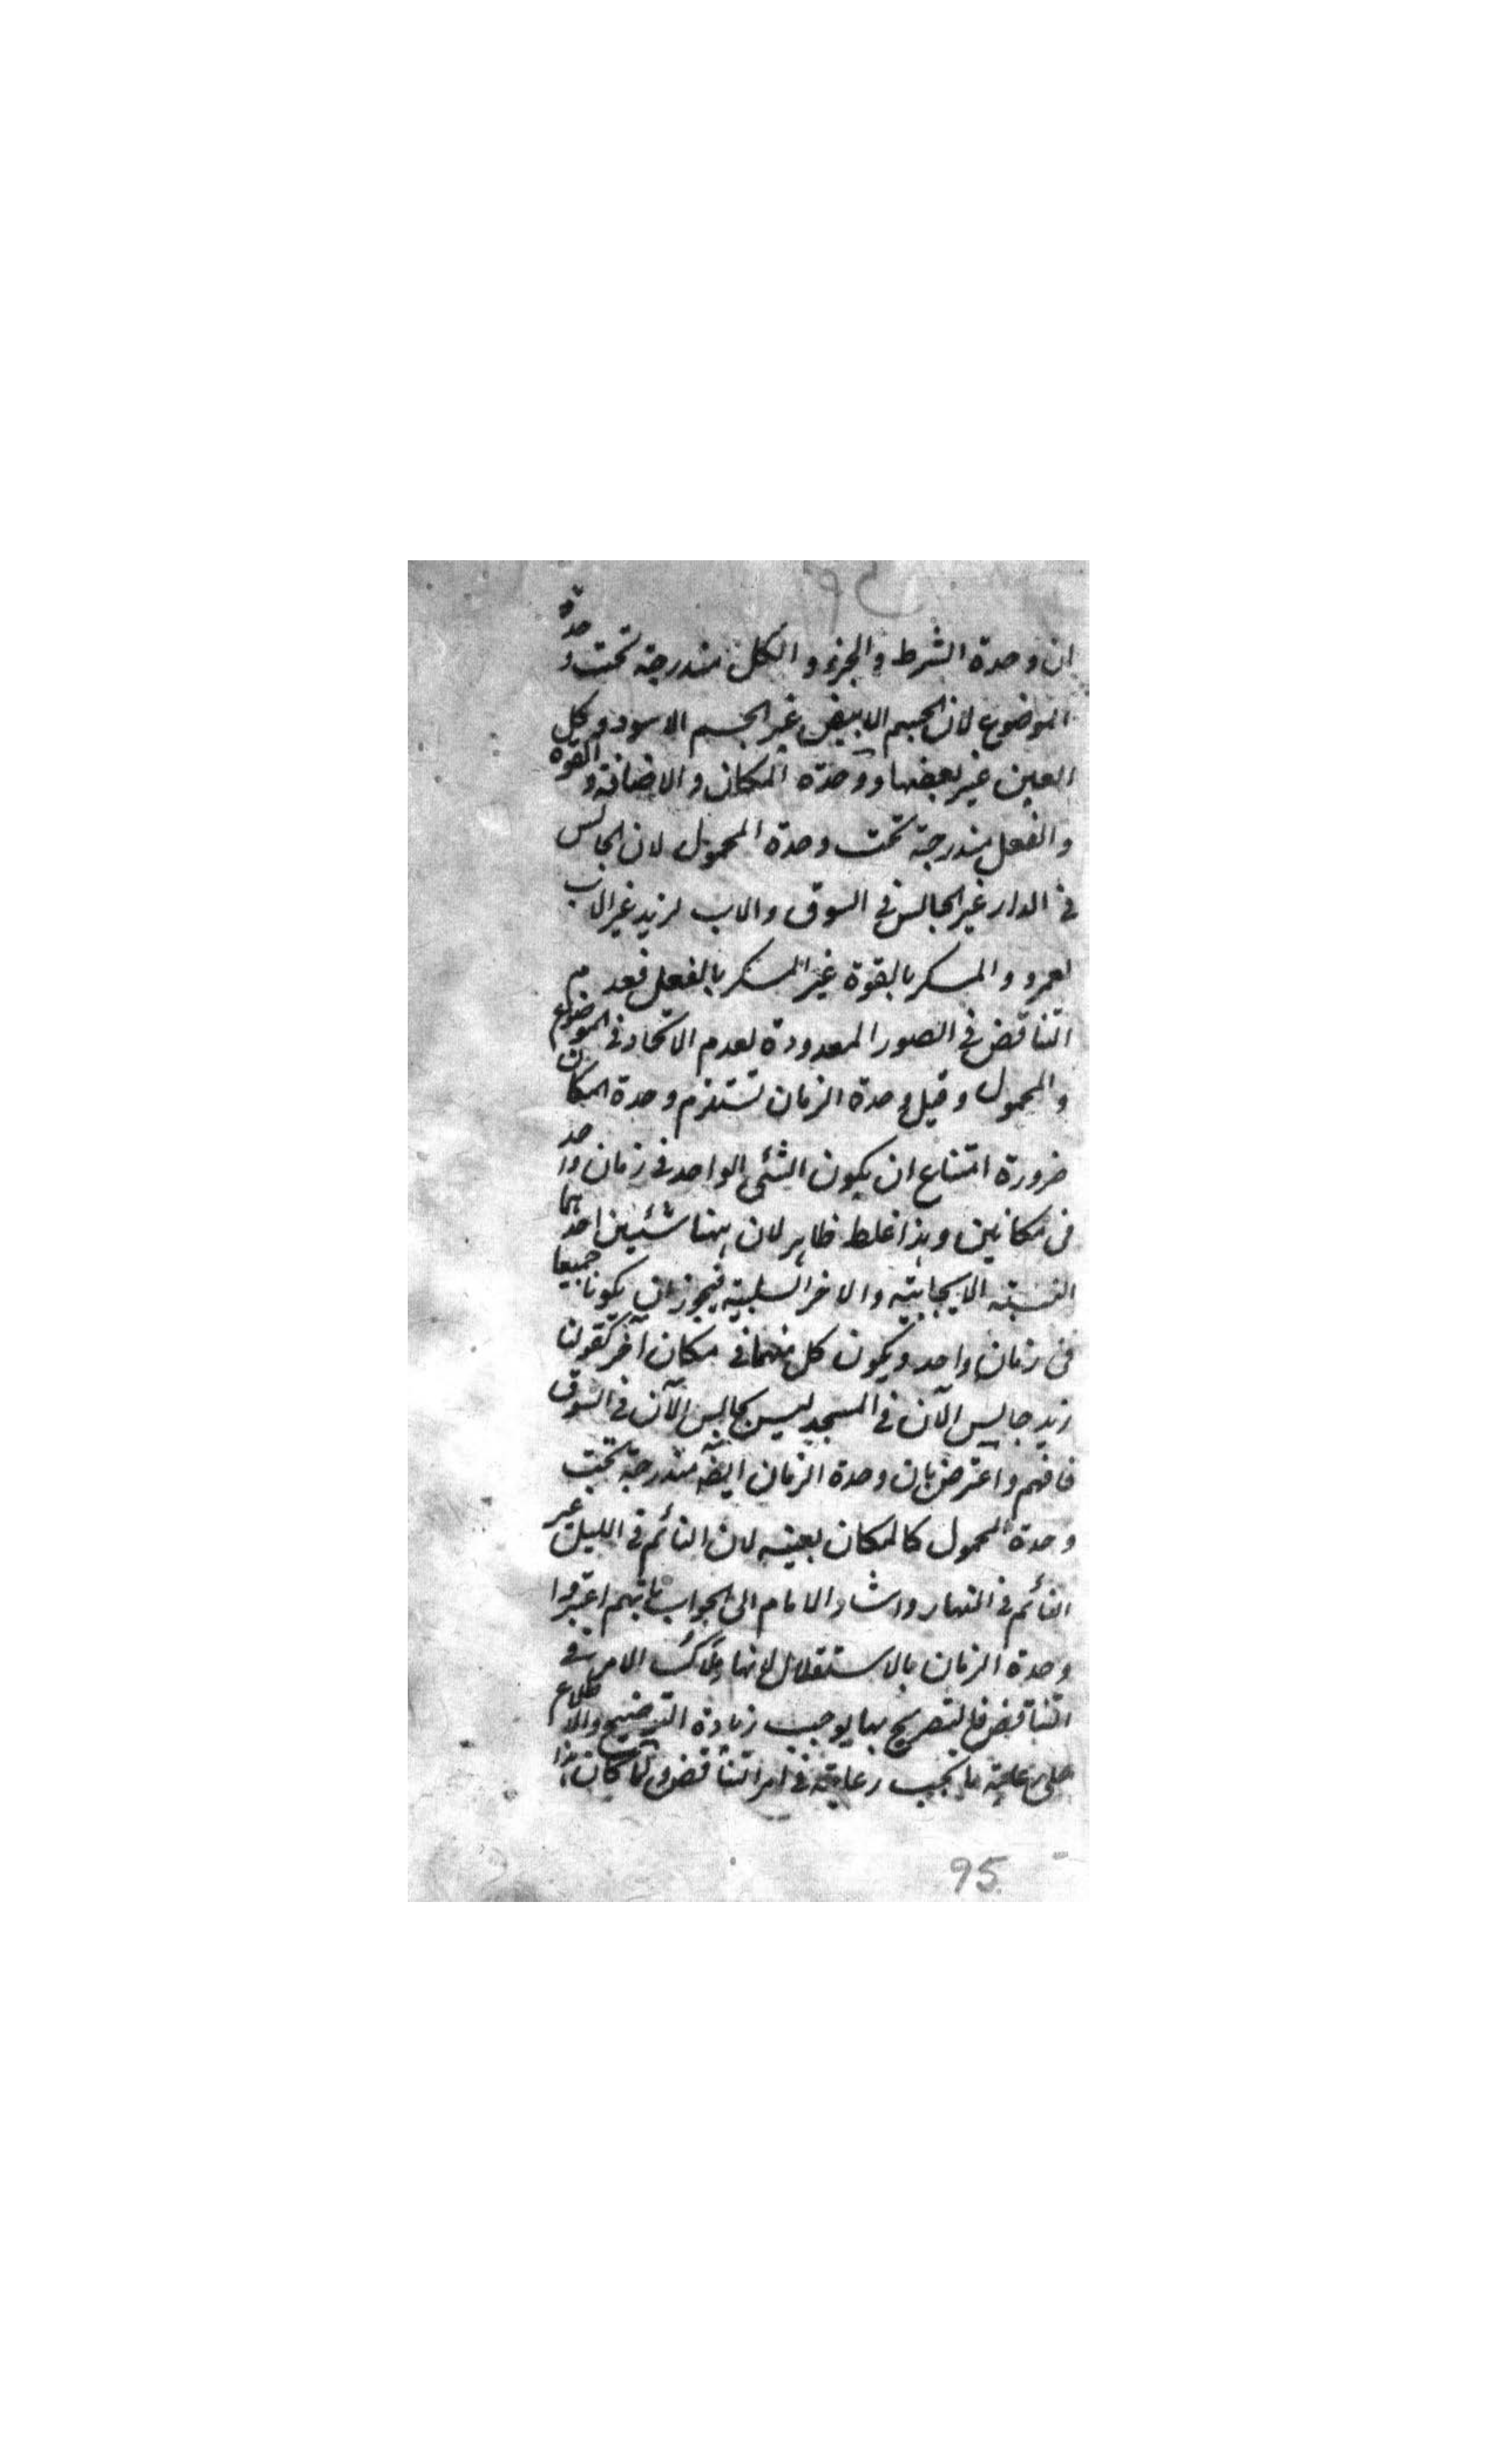 ان وحدة الشرط والجزء والكل مندرجة تحت وحدة
الموضوع لان الجسم الابيض غير الجسم الاسود وكل
العين غير بعضها ووحدة المكان والاضافة والقوة
والفعل مندرجة تحت وحدة المحمول لان الجالس
في الدار غير الجالس في السوق والاب لزيد غير الاب
لعمرو والمسكر بالقوة غير المسكر بالفعل فعدم
التناقض في الصور المعدودة لعدم الاتحاد في الموضوع
والمحمول وقيل وحدة الزمان تستلزم وحدة المكان
ضرورة امتناع ان يكون الشئ الواحد في زمان واحد
في مكانين وهذا غلط ظاهر لان ههنا شئين احدهما
النسبته الايجابيته والاخر السلبيته فيجوز ان يكونا جميعا
في زمان واحد ويكون كل منهما في مكان آخر كقولنا
زيد جالس الآن في المسجد ليس بجالس الآن في السوق
فافهم واعترض بان وحدة الزمان ايضه مندرجة تحت
وحدة المحمول كالمكان بعينه لان النائم في الليل غير
النائم في النهار واشار الامام الى الجواب بانهم اعتبروا
وحدة الزمان بالاستقلال لانها ملاك الامر في
التناقض فالتصريح بها يوجب زيادة التوضيح والاطلاع
على ما يجب رعايته في امر التناقض ولما كان هذا
95